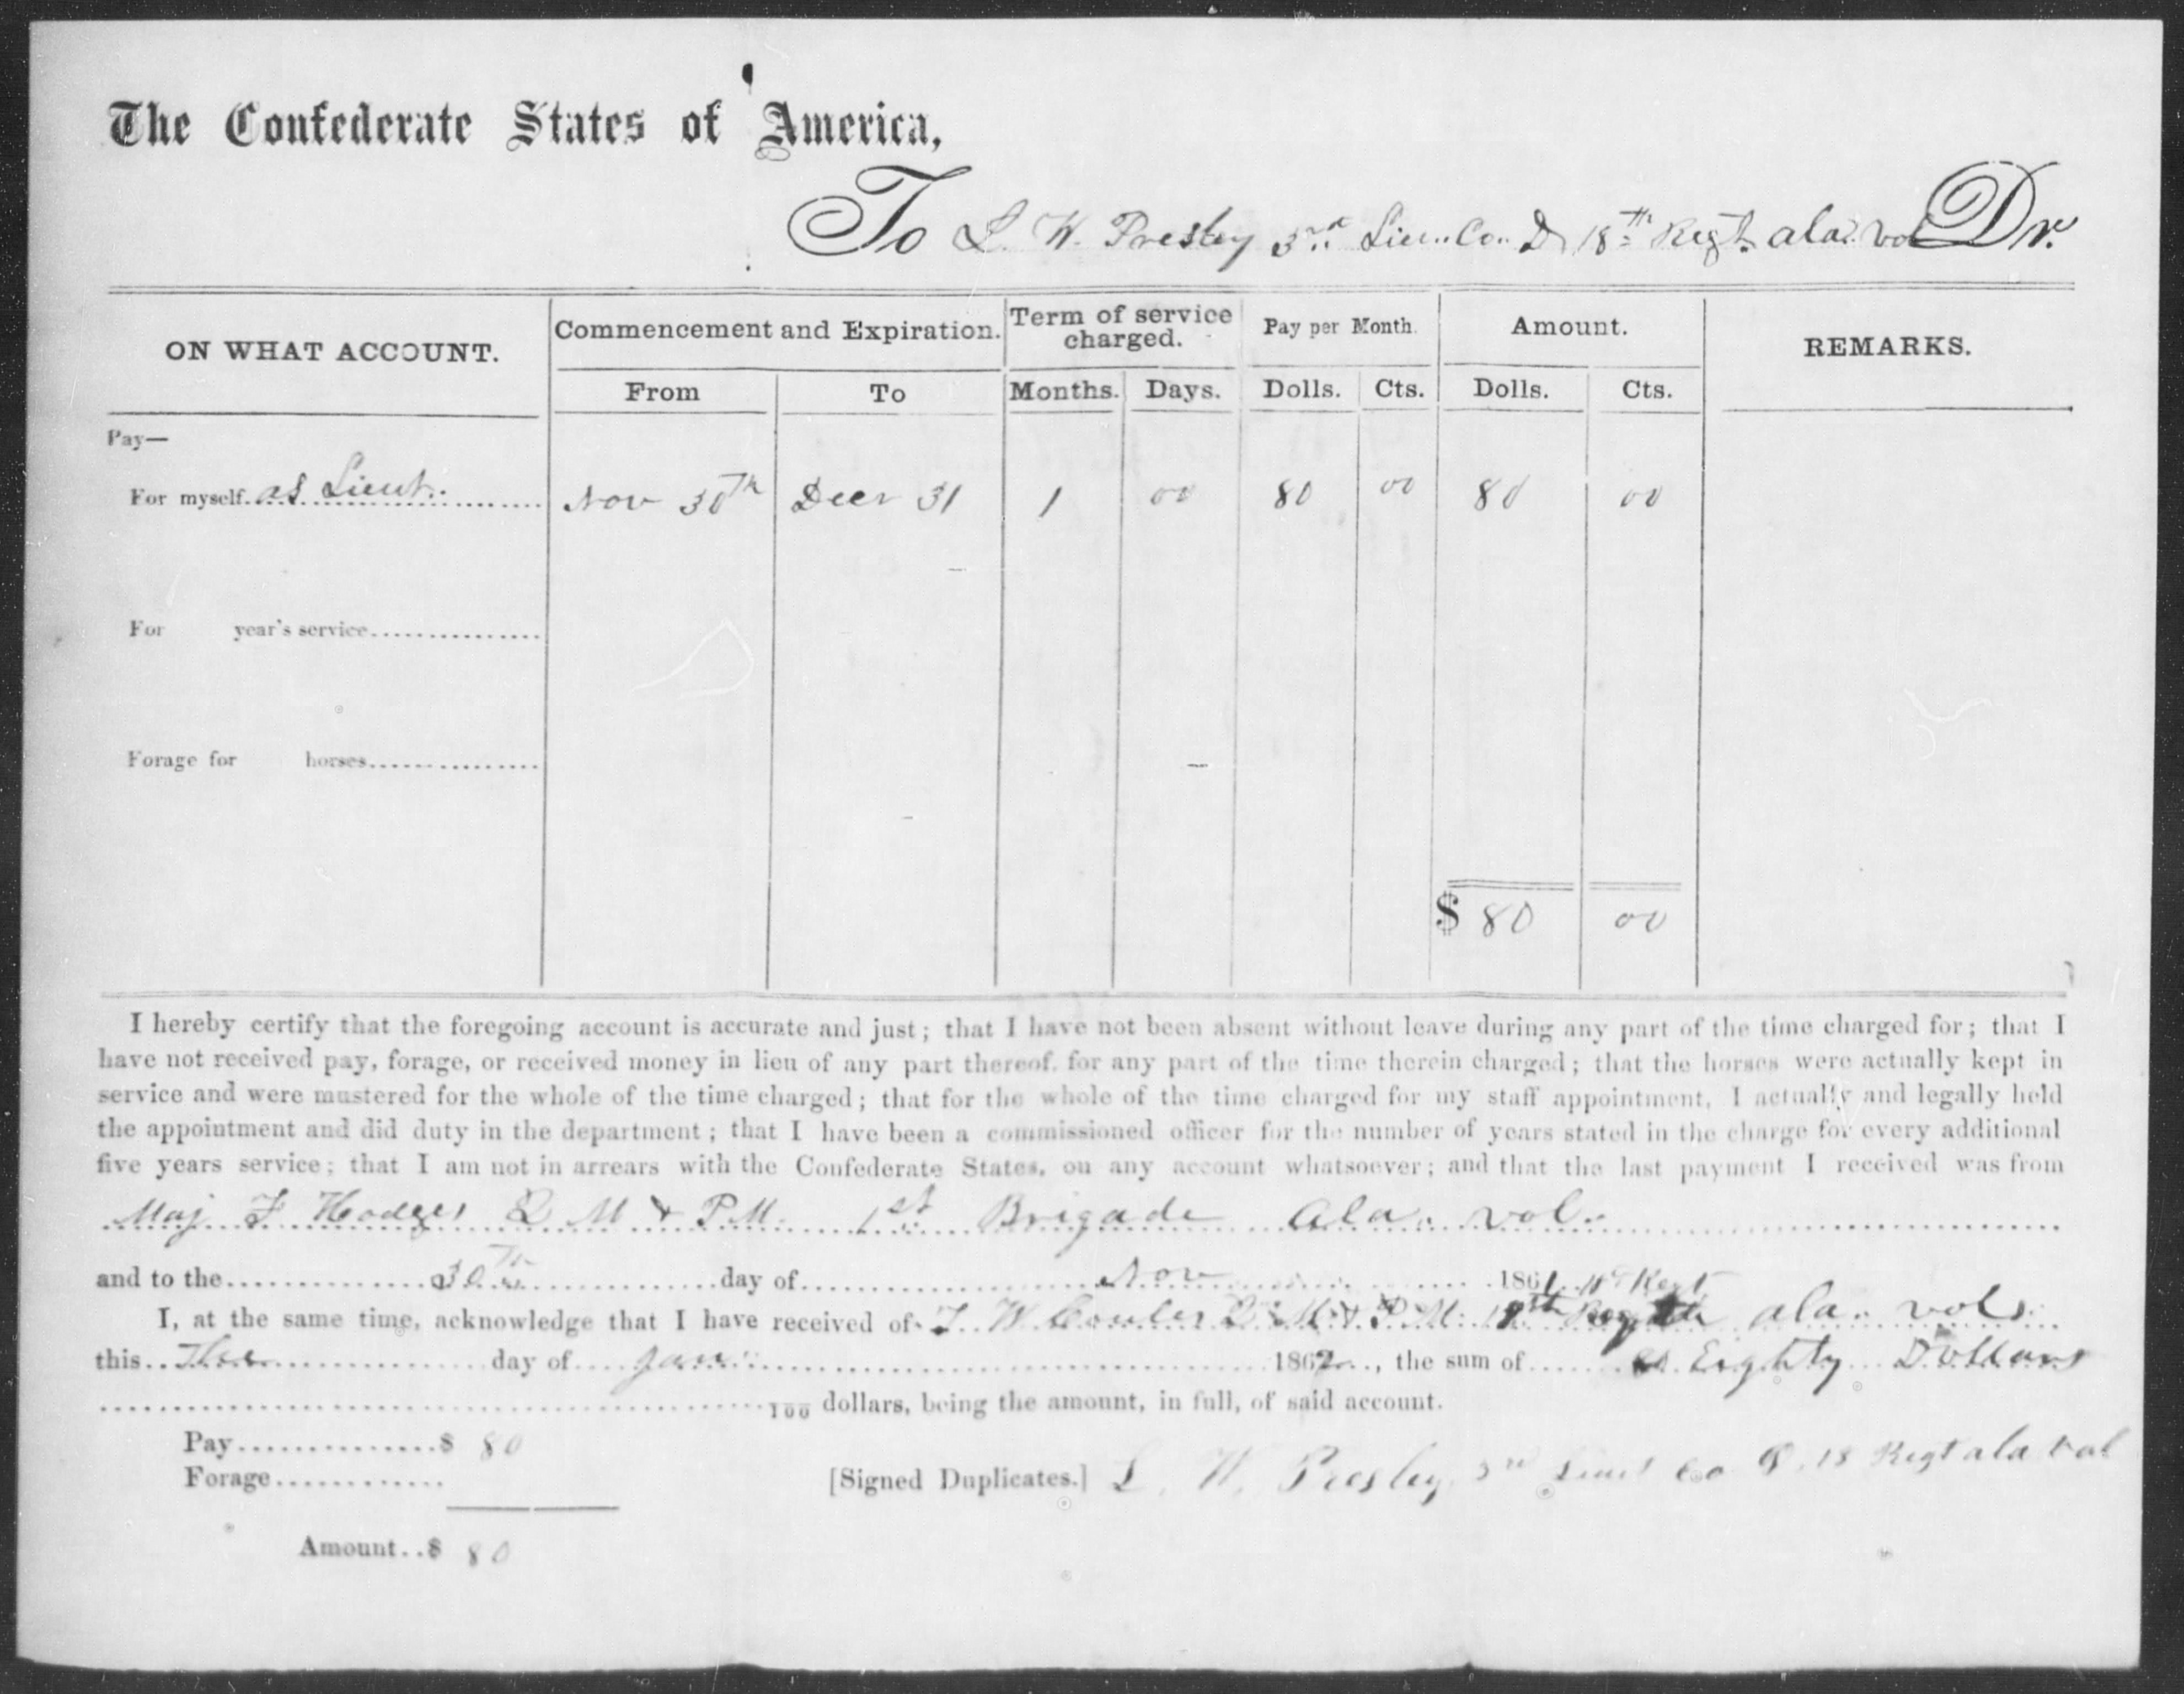 The Confederate States of America,
To L. W. Presley 3rd Lieu. Co. D 18th Regt. ala. vol Dr.
ON WHAT ACCOUNT. Commencement and Expiration. Term of service charged. Pay per Month. Amount. REMARKS.
From To Months. Days. Dolls. Cts. Dolls. Cts.
Pay—
For myself as Lieut. Nov 30th Decr 31 1 00 80 00 80 00
For year's service
Forage for horses
$ 80 00
I hereby certify that the foregoing account is accurate and just; that I have not been absent without leave during any part of the time charged for; that I
have not received pay, forage, or received money in lieu of any part thereof, for any part of the time therein charged; that the horses were actually kept in
service and were mustered for the whole of the time charged; that for the whole of the time charged for my staff appointment, I actually and legally held
the appointment and did duty in the department; that I have been a commissioned officer for the number of years stated in the charge for every additional
five years service; that I am not in arrears with the Confederate States, on any account whatsoever; and that the last payment I received was from
Maj F Hodges Q M & P.M. 1st Brigade Ala. vol.
and to the 30th day of Nov 1861 Regt
I, at the same time, acknowledge that I have received of W Q M & P M. ala. vols.
this The day of Jan 1862, the sum of Eighty Dollars
100 dollars, being the amount, in full, of said account.
Pay $ 80
Forage
[Signed Duplicates.] L. W. Presley, 3rd Lieut Co D. 18 Regt ala Vol
Amount..$ 80